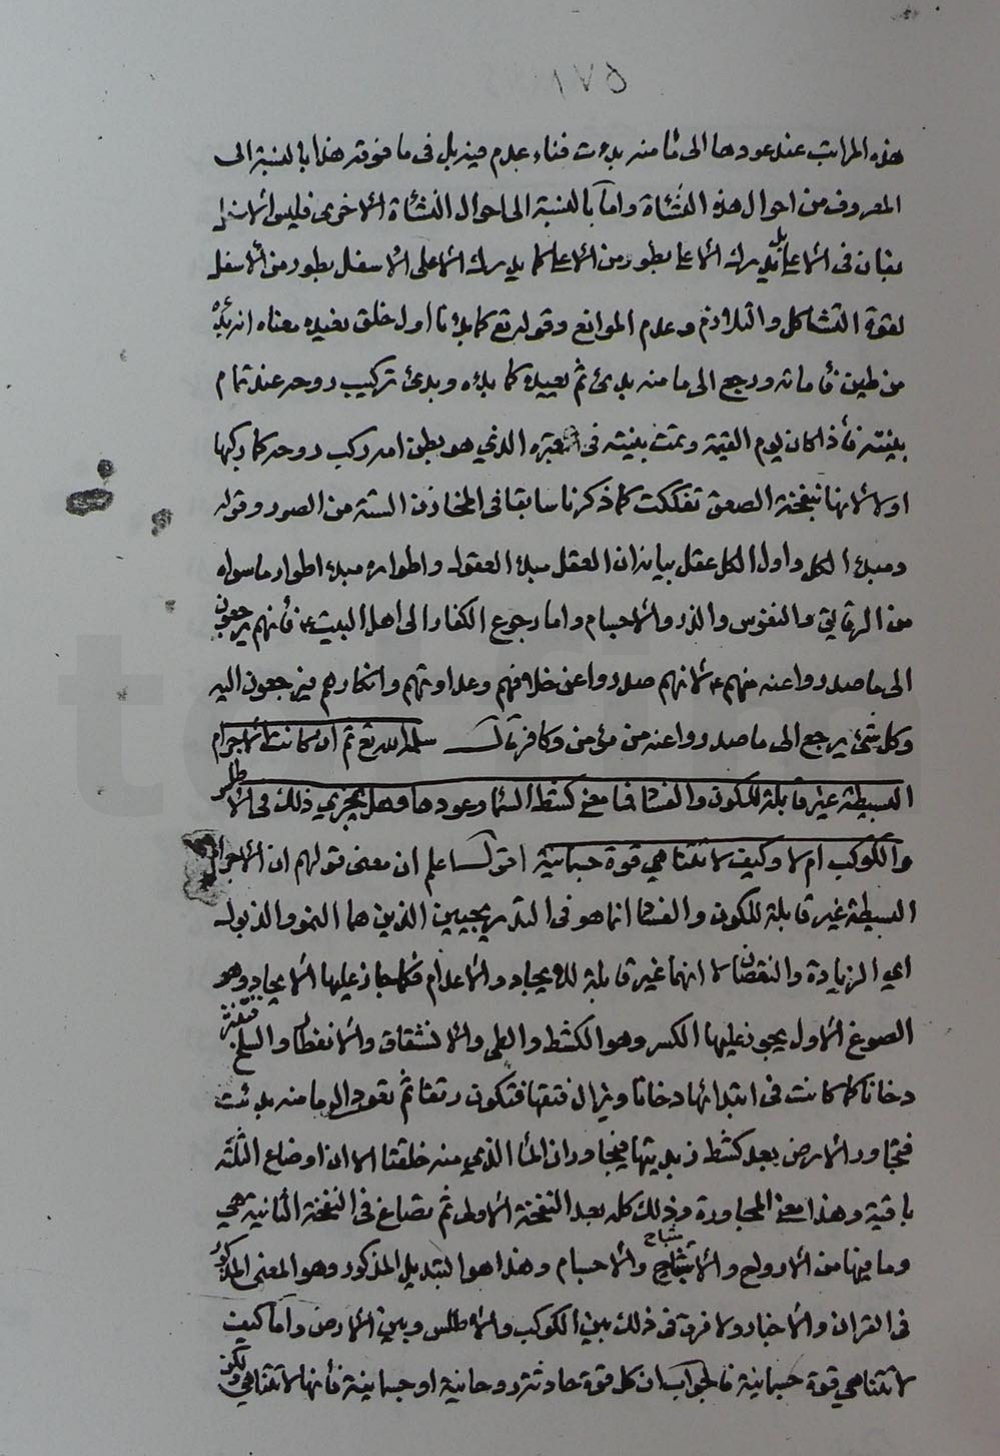 ١٧٥
هذه المراتب عند عودها الى ما منه بدءت فناء عدم فيه بل فى ما فوقه هذا بالنسبة الى
المعروف من احوال هذه النشأة واما بالنسبة الى احوال النشأة الاخرى فليس الامر
فى الاعلى بل يدرك الاعلى بطور من الاعلى كما يدرك الاعلى الاسفل بطور من الاسفل
لقوة التشاكل والتلازم وعدم الموانع وقوله تع كما بدانا اول خلق نعيده معناه انه بدءه
من طين فاماته ورجع الى ما منه بدئ ثم يعيده كما بدءه وبدئ تركيب روحه عند تمام
بنيته فأذا كان يوم القيمة وتمت بنيته فى قبره الذي هو بطن امه ركب روحه كما ركبها
اولا لانها نبفخة الصعق تفككت كما ذكرنا سابقا فى المخازن الستة من الصور وقوله
ومبدء الكل واول الكل عقل بيانه ان العقل مبدء العقول واطواره مبدء اطوار ما سواه
من الرقايق والنفوس والذر والاجسام واما رجوع الكفار الى اهل البيت ع فأنهم يرجعون
الى ما صدروا عنه منهم ع لانهم صدروا عن خلافهم وعداوتهم وانكارهم فيرجعون اليه
وكل شئ يرجع الى ما صدروا عنه من مؤمن وكافر قال سلمه الله تع ثم ان كانت الاجرام
البسيطة غير قابلة للكون والفسا فما معنى كشط السماء وعودها وهل يجري ذلك فى الاطلس
والكوكب ام لا وكيف لا تتناهي قوة جسمانية اقول اعلم ان معنى قولهم ان الاجرام
البسيطة غير قابلة للكون والفسا انما هو فى التدريجيين الذين هما النمو والذبول
اي الزيادة والنقصان لا انهما غير قابلة للايجاد والاعدام فكما جاز عليها الايجاد وهو
الصوغ الاول يجوز عليها الكسر وهو الكشط والطى والانشقاق والانفطار والسلخ
دخانا كما كانت فى ابتدائها دخانا ويزال فتقها فتكون رتقا ثم تعود الى ما منه بدئت
فتجاور الارض بعد كشط زبديتها فيتجاوران الما الذي منه خلقتا الا ان اوضاع الثلثة
باقية وهذا معنى المجاورة وذلك كله بعد النفخة الاولى ثم تصاغ فى النفخة الثانية هي
وما فيها من الارواح والاشباح والاجسام وهذا هو التبديل المذكور وهو المعنى المذكور
فى القران والاخبار ولا فرق فى ذلك بين الكوكب والاطلس وبين الارض واما كيف
لا تتناهي قوة جسمانية فالجواب ان كل قوة حادثة روحانية او جسمانية فأنها لا تتناهي ولكن